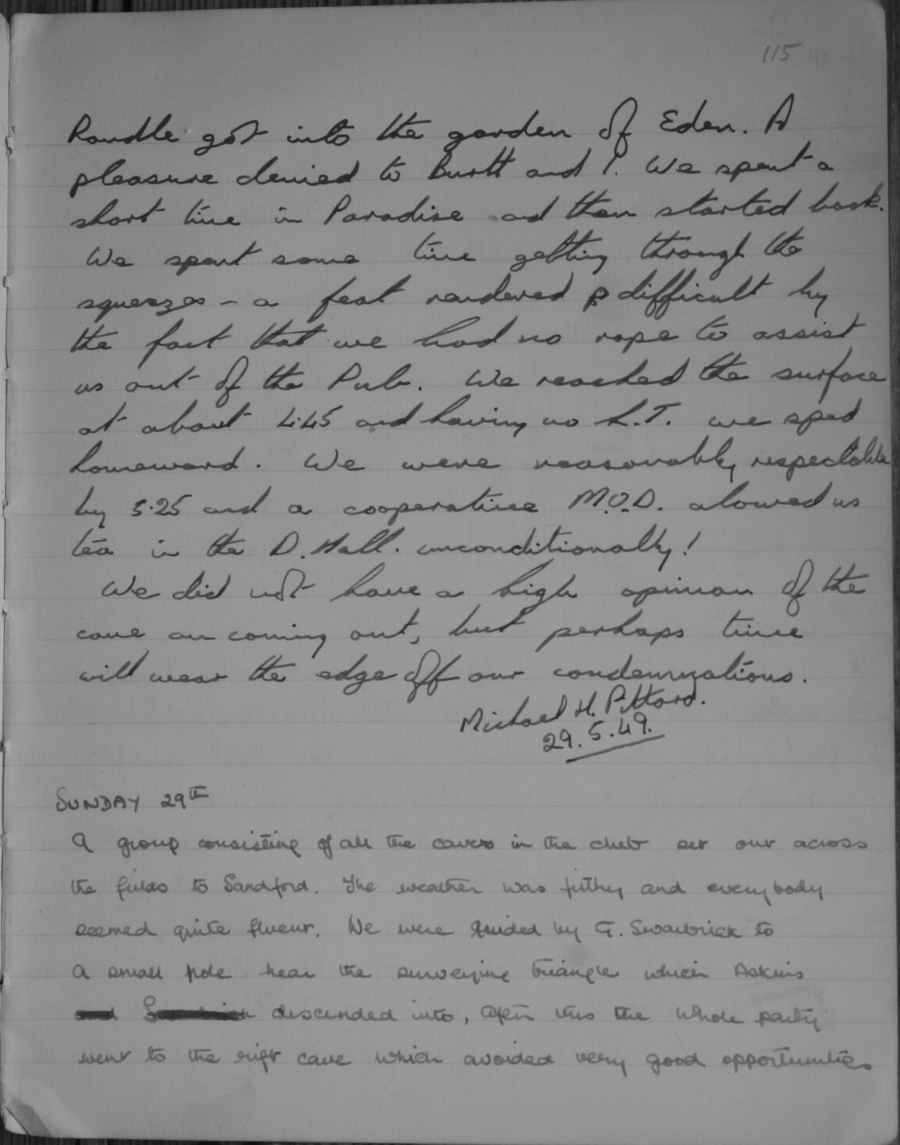 115
Randle got into the garden of Eden. A
pleasure denied to Burtt and I. We spent a
short time in Paradise and then started back.
We spent some time getting through the
squeezes - a feat rendered difficult by
the fact that we had no rope to assist
us out of the Pub. We reached the surface
at about 4.45 and having no L.T. we sped
homeward. We were reasonably respectable
by 5.25 and a cooperative M.O.D. alowed us
tea in the D. Hall. unconditionally!
We did not have a high opinion of the
cave on coming out, but perhaps time
will wear the edge off our condemnations.
Michael H. Pittard.
29.5.49.
SUNDAY 29TH
A group consisting of all the cavers in the club set out across
the fields to Sandford. The weather was filthy and everybody
seemed quite fluent. We were guided by G. Swarbrick to
a small hole near the surveying triangle which Askins
and descended into, after this the whole party
went to the rift cave which avoided very good opportunities